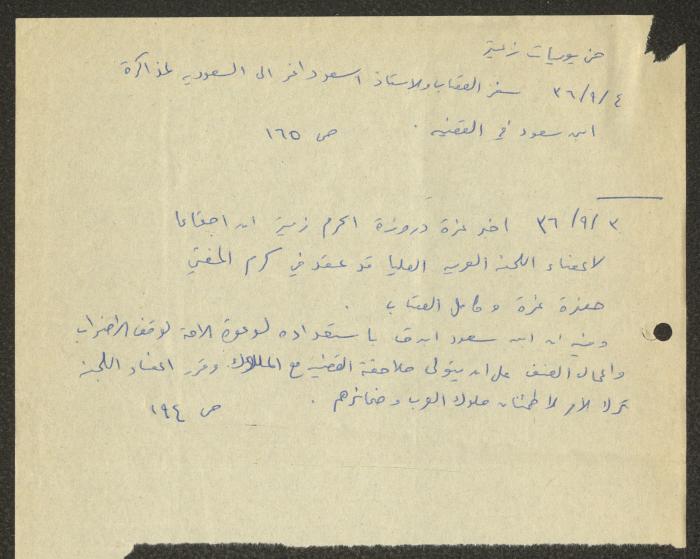 من يوميات زعيتر
٣٦/٩/٤ سفر القصاب والاستاذ اسعد داغر الى السعوديه لمذاكرة
ابن سعود في القضيه . ص ١٦٥
٣٦/٩/٣ اخبر عزة دروزة اكرم زعيتر ان اجتماعا
لاعضاء اللجنة العربيه العليا قد عقد في كرم المفتي
حضره عزة وكامل القصاب .
وفيه ان ابن سعود ابرق باستعداده لدعوة الامة لوقف الاضراب
واعمال العنف على ان يتولى ملاحقة القضية مع الملوك وقرر اعضاء اللجنة
ترك الامر لاطمئنان ملوك العرب وضمائرهم . ص ١٩٤